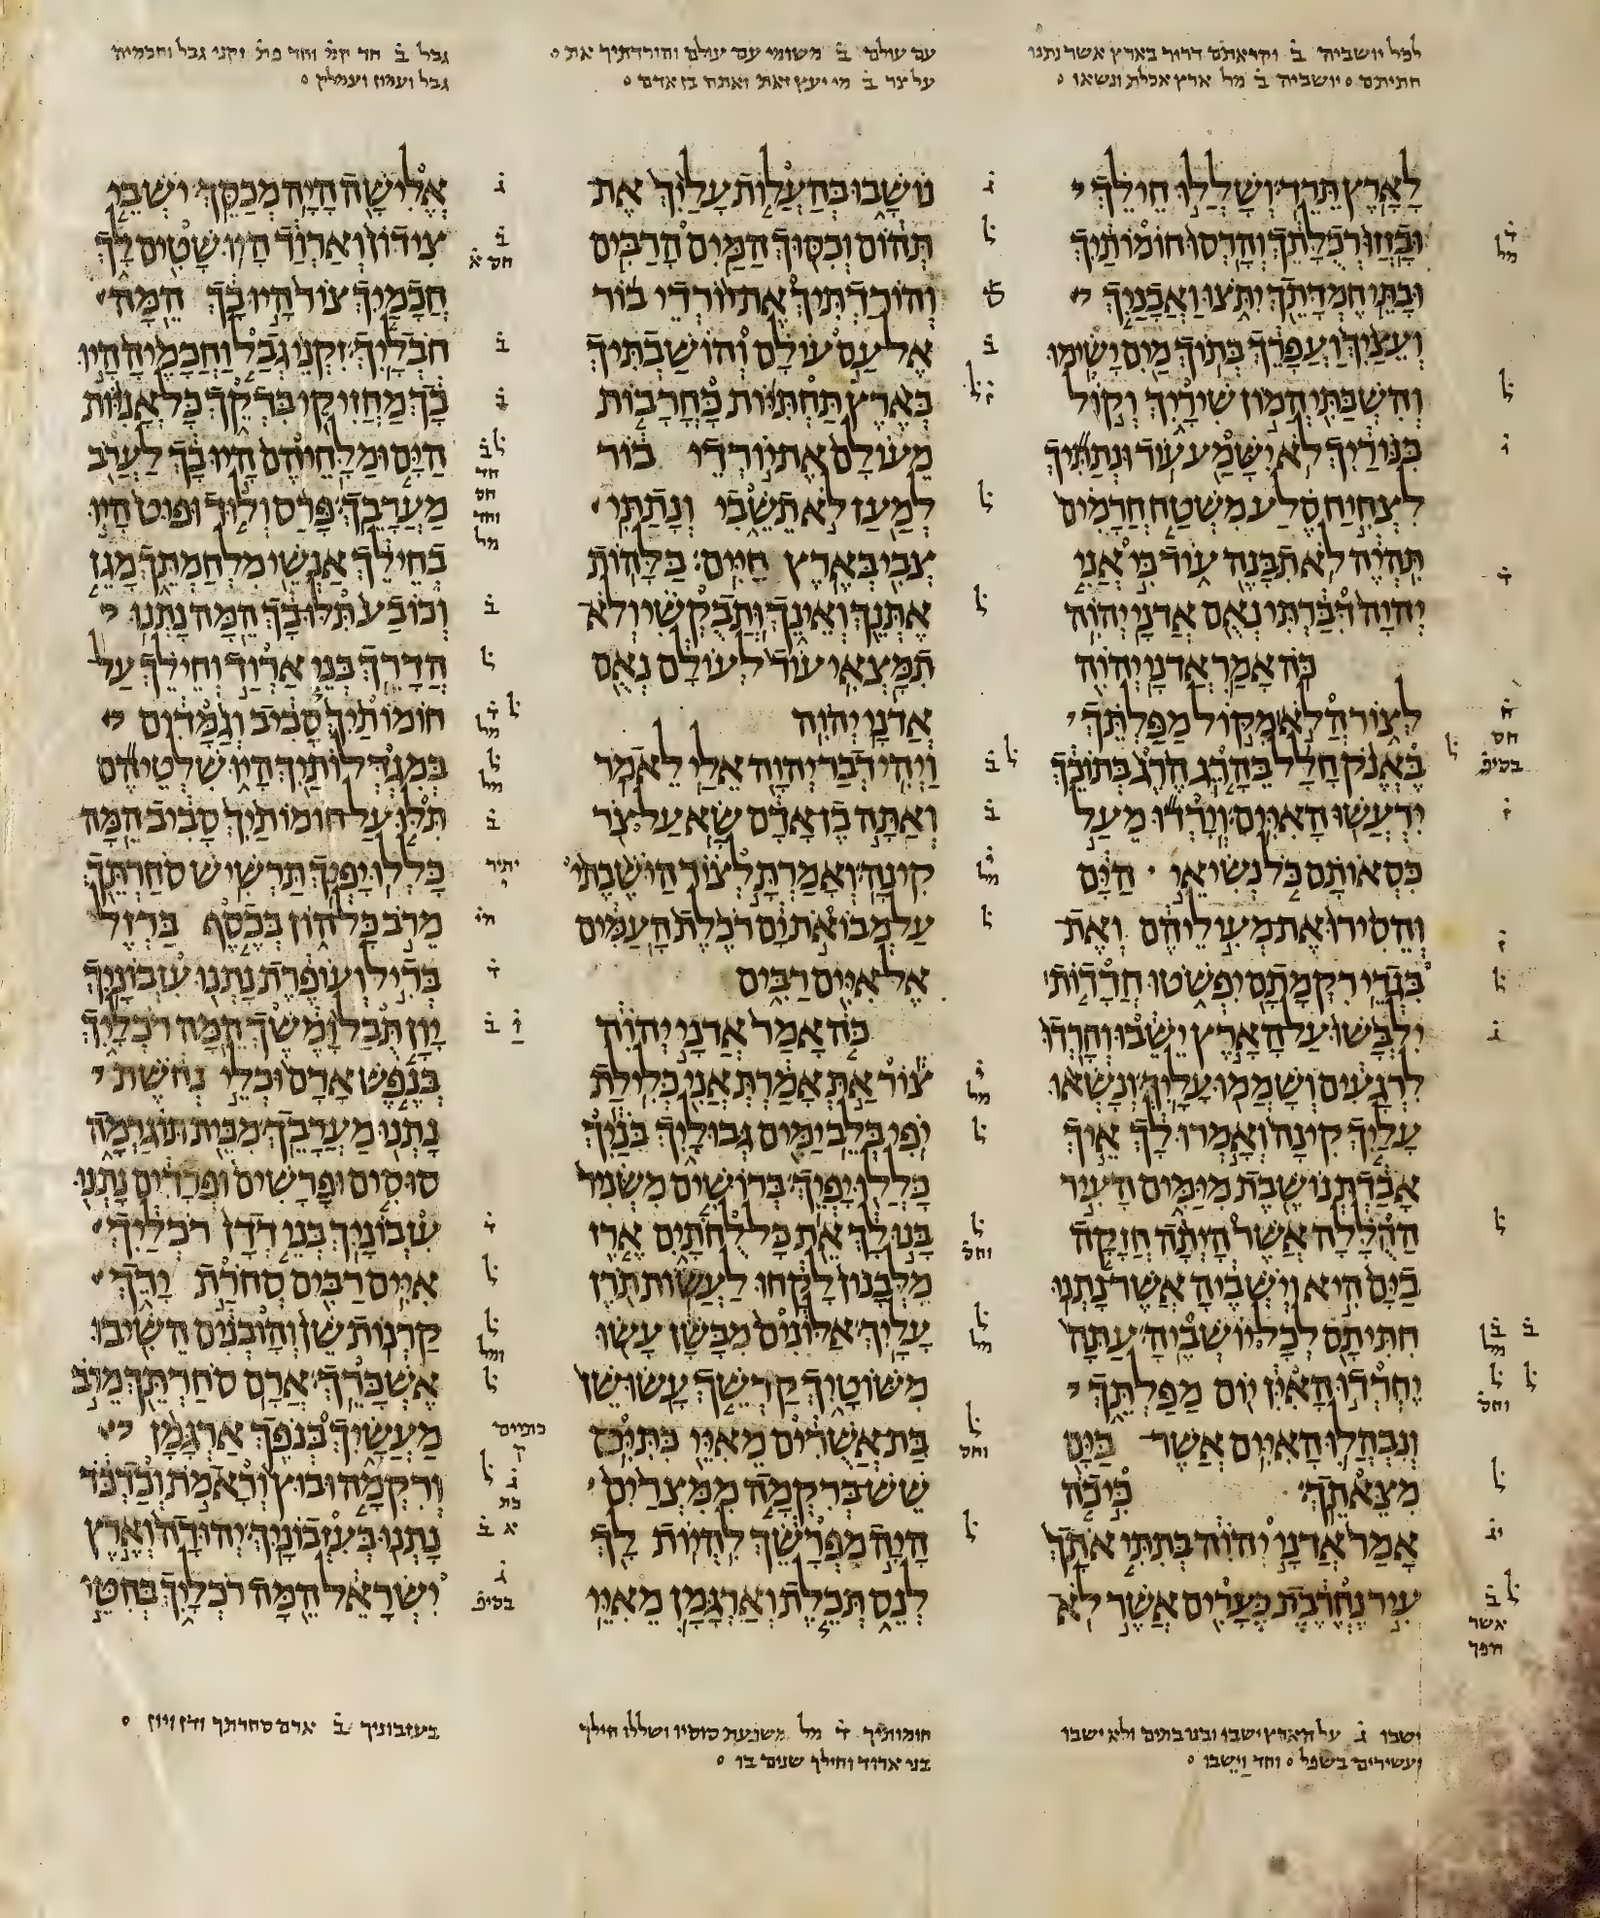 לכל יושביה ב̇ וקראתם דרור בארץ אשר נתנו
חתיתם ∘ יושביה ב̇ מל ארץ אכלת ונשאו ∘
עם עולם ב̇ משומי עם עולם והורדתיך את ∘
על צר ב̇ מי יעץ זאת ואתה בן אדם ∘
גבל ב̇ חד קמ̇ וחד פת̇ זקני גבל וחכמיה
גבל ועמון ועמלק ∘
לָאָרֶץ תֵּרֵד וְשָׁלְלוּ חֵילֵךְ
וּבָזְזוּ רְכֻלָּתֵךְ וְהָרְסוּ חוֹמוֹתַיִךְ
וּבָתֵּי חֶמְדָּתֵךְ יִתֹּצוּ וַאֲבָנַיִךְ
וְעֵצַיִךְ וַעֲפָרֵךְ בְּתוֹךְ מַיִם יָשִׂימוּ
וְהִשְׁבַּתִּי הֲמוֹן שִׁירָיִךְ וְקוֹל
כִּנּוֹרַיִךְ לֹא יִשָּׁמַע עוֹד וּנְתַתִּיךְ
לִצְחִיחַ סֶלַע מִשְׁטַח חֲרָמִים
תִּהְיֶה לֹא תִבָּנֶה עוֹד כִּי אֲנִי
יְהוָה דִּבַּרְתִּי נְאֻם אֲדֹנָי יְהוִה
כֹּה אָמַר אֲדֹנָי יְהוִה
לְצוֹר הֲלֹא מִקּוֹל מַפַּלְתֵּךְ
בֶּאֱנֹק חָלָל בֵּהָרֵג הֶרֶג בְּתוֹכֵךְ
יִרְעֲשׁוּ הָאִיִּים וְיָרְדוּ מֵעַל
כִּסְאוֹתָם כֹּל נְשִׂיאֵי הַיָּם
וְהֵסִירוּ אֶת מְעִילֵיהֶם וְאֶת
בִּגְדֵי רִקְמָתָם יִפְשֹׁטוּ חֲרָדוֹת
יִלְבָּשׁוּ עַל הָאָרֶץ יֵשֵׁבוּ וְחָרְדוּ
לִרְגָעִים וְשָׁמְמוּ עָלָיִךְ וְנָשְׂאוּ
עָלַיִךְ קִינָה וְאָמְרוּ לָךְ אֵיךְ
אָבַדְתְּ נוֹשֶׁבֶת מִיַּמִּים הָעִיר
הַהֻלָּלָה אֲשֶׁר הָיְתָה חֲזָקָה
בַיָּם הִיא וְיֹשְׁבֶיהָ אֲשֶׁר נָתְנוּ
חִתִּיתָם לְכָל יוֹשְׁבֶיהָ עַתָּה
יֶחְרְדוּ הָאִיִּן יוֹם מַפַּלְתֵּךְ
וְנִבְהֲלוּ הָאִיִּים אֲשֶׁר בַּיָּם
מִצֵּאתֵךְ כִּי כֹה
אָמַר אֲדֹנָי יְהוִה בְּתִתִּי אֹתָךְ
עִיר נֶחֱרֶבֶת כֶּעָרִים אֲשֶׁר לֹא
נוֹשָׁבוּ בְּהַעֲלוֹת עָלַיִךְ אֶת
תְּהוֹם וְכִסּוּךְ הַמַּיִם הָרַבִּים
וְהוֹרַדְתִּיךְ אֶת יוֹרְדֵי בוֹר
אֶל עַם עוֹלָם וְהוֹשַׁבְתִּיךְ
בְּאֶרֶץ תַּחְתִּיּוֹת כָּחֳרָבוֹת
מֵעוֹלָם אֶת יוֹרְדֵי בוֹר
לְמַעַן לֹא תֵשֵׁבִי וְנָתַתִּי
צְבִי בְּאֶרֶץ חַיִּים בַּלָּהוֹת
אֶתְּנֵךְ וְאֵינֵךְ וּתְבֻקְשִׁי וְלֹא
תִמָּצְאִי עוֹד לְעוֹלָם נְאֻם
אֲדֹנָי יְהוִה
וַיְהִי דְבַר יְהוָה אֵלַי לֵאמֹר
וְאַתָּה בֶן אָדָם שָׂא עַל צֹר
קִינָה וְאָמַרְתָּ לְצוֹר הַיּוֹשֶׁבֶתי
עַל מְבוֹאֹת יָם רֹכֶלֶת הָעַמִּים
אֶל אִיִּים רַבִּים
כֹּה אָמַר אֲדֹנָי יְהוִה
צוֹר אַתְּ אָמַרְתְּ אֲנִי כְּלִילַת
יֹפִי בְּלֵב יַמִּים גְּבוּלָיִךְ בֹּנַיִךְ
כָּלְלוּ יָפְיֵךְ בְּרוֹשִׁים מִשְּׂנִיר
בָּנוּ לָךְ אֵת כָּל לֻחֹתָיִם אֶרֶז
מִלְּבָנוֹן לָקָחוּ לַעֲשׂוֹת תֹּרֶן
עָלָיִךְ אַלּוֹנִים מִבָּשָׁן עָשׂוּ
מִשּׁוֹטָיִךְ קַרְשֵׁךְ עָשׂוּ שֵׁן
בַּת אֲשֻׁרִים מֵאִיֵּי כִּתִּיִּם
שֵׁשׁ בְּרִקְמָה מִמִּצְרַיִם
הָיָה מִפְרָשֵׂךְ לִהְיוֹת לָךְ
לְנֵס תְּכֵלֶת וְאַרְגָּמָן מֵאִיֵּי
אֱלִישָׁה הָיָה מְכַסֵּךְ יֹשְׁבֵי
צִידוֹן וְאַרְוַד הָיוּ שָׁטִים לָךְ
חֲכָמַיִךְ צוֹר הָיוּ בָךְ הֵמָּה
חֹבְלָיִךְ זִקְנֵי גְבַל וַחֲכָמֶיהָ הָיוּ
בָךְ מַחֲזִיקֵי בִּדְקֵךְ כָּל אֳנִיּוֹת
הַיָּם וּמַלָּחֵיהֶם הָיוּ בָךְ לַעֲרֹב
מַעֲרָבֵךְ פָּרַס וְלוּד וּפוּט הָיוּ
בְחֵילֵךְ אַנְשֵׁי מִלְחַמְתֵּךְ מָגֵן
וְכוֹבַע תִּלּוּ בָךְ הֵמָּה נָתְנוּ
הֲדָרֵךְ בְּנֵי אַרְוַד וְחֵילֵךְ עַל
חוֹמוֹתַיִךְ סָבִיב וְגַמָּדִים
בְּמִגְדְּלוֹתַיִךְ הָיוּ שִׁלְטֵיהֶם
תִּלּוּ עַל חוֹמוֹתַיִךְ סָבִיב הֵמָּה
כָּלְלוּ יָפְיֵךְ תַּרְשִׁישׁ סֹחַרְתֵּךְ
מֵרֹב כָּל הוֹן בְּכֶסֶף בַּרְזֶל
בְּדִיל וְעוֹפֶרֶת נָתְנוּ עִזְבוֹנָיִךְ
יָוָן תֻּבַל וָמֶשֶׁךְ הֵמָּה רֹכְלָיִךְ
בְּנֶפֶשׁ אָדָם וּכְלֵי נְחֹשֶׁת
נָתְנוּ מַעֲרָבֵךְ מִבֵּית תּוֹגַרְמָה
סוּסִים וּפָרָשִׁים וּפְרָדִים נָתְנוּ
עִזְבוֹנָיִךְ בְּנֵי דְדָן רֹכְלַיִךְ
אִיִּים רַבִּים סְחֹרַת יָדֵךְ
קַרְנוֹת שֵׁן וְהוֹבְנִים הֵשִׁיבוּ
אֶשְׁכָּרֵךְ אֲרָם סֹחַרְתֵּךְ מֵרֹב
מַעֲשָׂיִךְ בְּנֹפֶךְ אַרְגָּמָן
וְרִקְמָה וּבוּץ וְרָאמֹת וְכַדְכֹּד
נָתְנוּ בְּעִזְבוֹנָיִךְ יְהוּדָה וְאֶרֶץ
יִשְׂרָאֵל הֵמָּה רֹכְלָיִךְ בְּחִטֵּי
ישבו ג̇ על הארץ ישבו ובנו בתים ולא ישבו
ועשירים בשפל ∘ וחד וַיֵשבו ∘
חומותיך ד̇ מל משפעת סוסיו ושללו חילך
בני ארוד וחילך שנים בו ∘
בעזבוניך ב̇ ארם סחרתך ודן ויון ∘